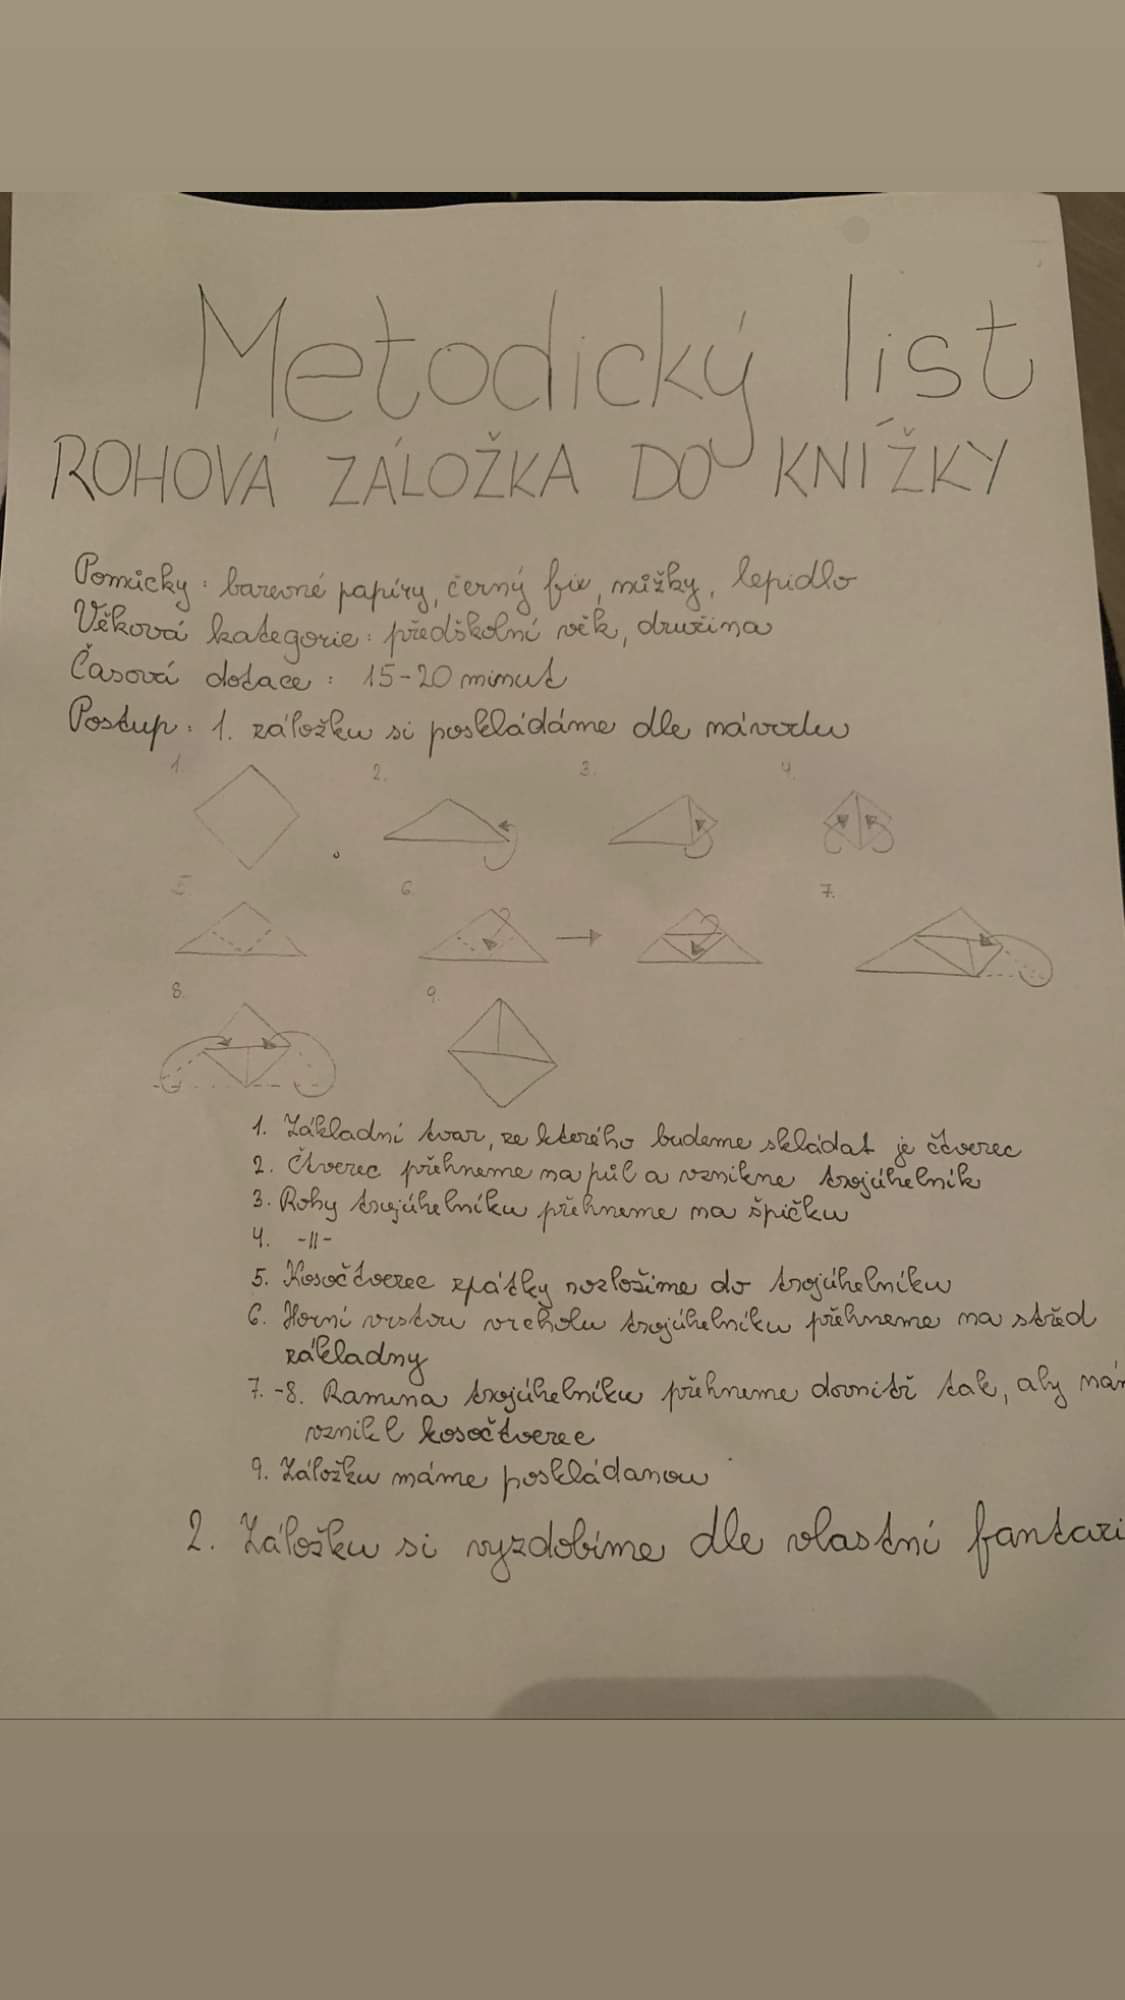 Metodický list
ROHOVÁ ZÁLOŽKA DO KNÍŽKY
Pomůcky: barevné papíry, černý fix, nůžky, lepidlo
Věková kategorie: předškolní věk, družina
Časová dotace: 15-20 minut
Postup: 1. záložku si poskládáme dle návodu
1. 2. 3. 4.
5. 6. 7.
8. 9.
1. Základní tvar, ze kterého budeme skládat je čtverec
2. Čtverec přehneme na půl a vznikne trojúhelník
3. Rohy trojúhelníku přehneme na špičku
4. -||-
5. Kosočtverec zpátky rozložíme do trojúhelníku
6. Horní vrstvu vrcholu trojúhelníku přehneme na střed
základny
7.-8. Ramena trojúhelníku přehneme dovnitř tak, aby nám
vznikl kosočtverec
9. Záložku máme poskládanou
2. Záložku si vyzdobíme dle vlastní fantazi